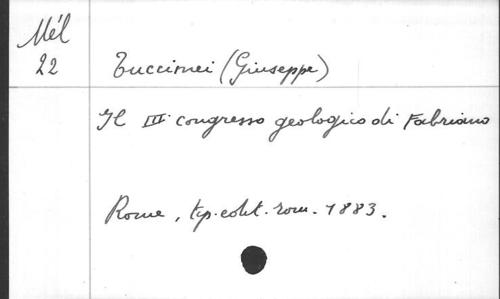 Mél
22
Tuccimei (Giuseppe)
Il III. congresso geologico di Fabriano
Rome, typ. edit. rom. 1883.